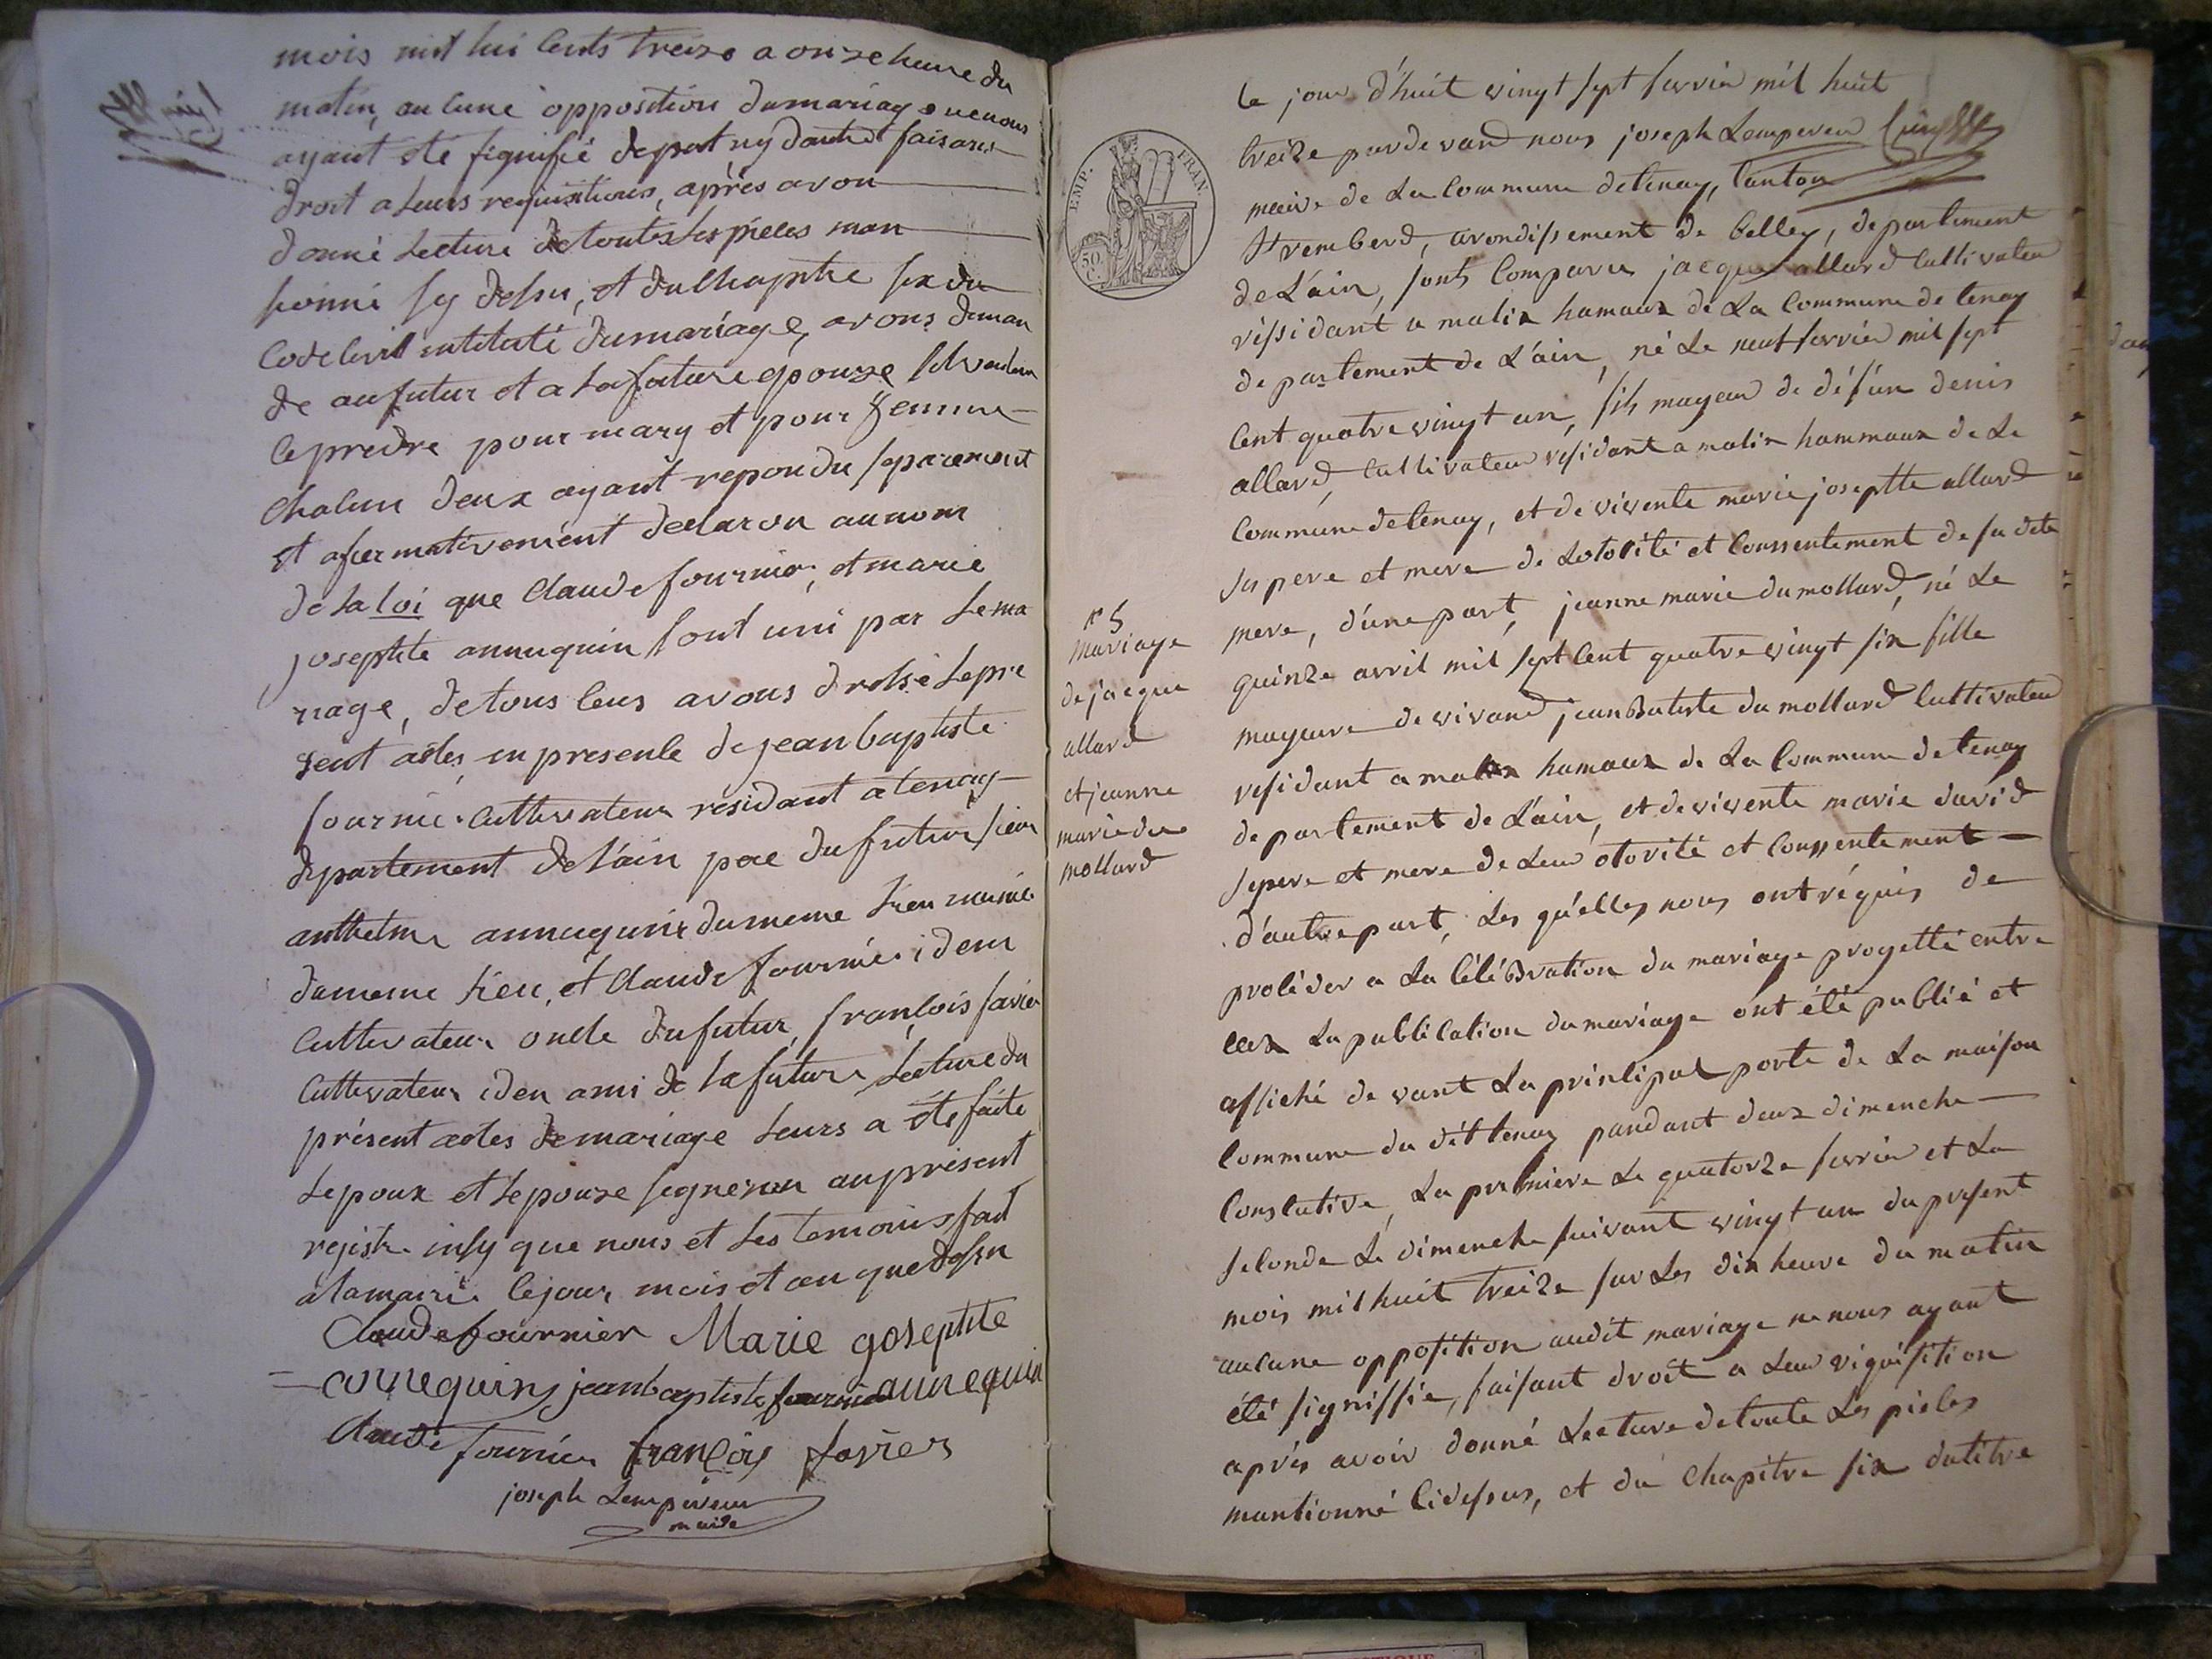 mois mil hui cents treize a onze heure du
matin, aucune opposition du mariage ne nous
ayant eté signifié de part ny dautre faisans
droit a leurs requisitions, après avon
donné lecture de toutes les pièces man
sionné sy desu, et du chapitre six du
code civil intitulé du mariage, avons deman
de au futur et a la future epouse sil veulen
ce predre pour mary et pour femme
chacun deux ayant repondu separement
et afermativement declaron au nom
de la loi que Claude fournier, et marie
josephte annequin sont uni par le ma
riage, de tous ceus avons drossé le pre
sent actes, en presence de jean baptiste
fournier cultivateur résidant a tenay
département de l'ain père du futur, sieur
anthelme annequin du meme lieu
du meme lieu, et Claude fournier idem
cultivateur oncle du futur, françois favier
cultivateur idem ami de la future, lecture du
présent actes de mariage leurs a été faite
lepoux et lepouze signeron au présent
registre insy que nous et les temoins fait
a la mairie le jour mois et an que desu
Claude fournier Marie gosephte
annequin jean baptiste fournier annequin
Claude fournier françois favier
joseph Lempereur
maire
le jour d'huit vingt sept fevrié mil huit
treize par devand nous joseph Lempereur
maire de La Commune de tenay, Canton
St remberd, arondissement de belley, departement
de L'ain, sonts Comparus jacque allard Cultivateu
réssidant a malix hamaux de La Commune de tenay
departement de L'ain, né Le neuf fevrié mil sept
Cent quatre vingt un, fils mageur de défun denis
allard, Cultivateur résidant a malix hammaux de Le
Commune de tenay, et de vivente marie josephte allard
ses pere et mere de Lotorité et Conssentement de sa dite
mere, d'une part, jeanne marie du mollard, né Le
quinze avril mil sept Cent quatre vingt six fille
mageure de vivand jean Batiste du mollard Cultivateu
residant a malix hamaux de La Commune de tenay
departement de L'ain, et de vivente marie david
se pere et mere de Leur otorité et Conssentement
d'autre part, Les qu'elles nous ont réquis de
proceder a La Célébration du mariage progetté entre
eux La publication du mariage ont été publié et
affiché devant La principal porte de La maison
Commune du dit tenay pandant deux dimenche
Conscutive, La premiere Le quatorze fevrié et La
seconde Le dimenche suivant vingt un du present
mois mil huit treize sur Les dix heure du matin
aucune opposition audit mariage ne nous ayant
été signiffié, faisant droit a Leur riquisition
après avoir donné Lecture de toute Les pieces
mantionné Cidessus, et du Chapitre six du titre
EMP. FRAN.
50
C.
n° 5
mariage
de jacque
allard
et jeanne
marie du
mollard